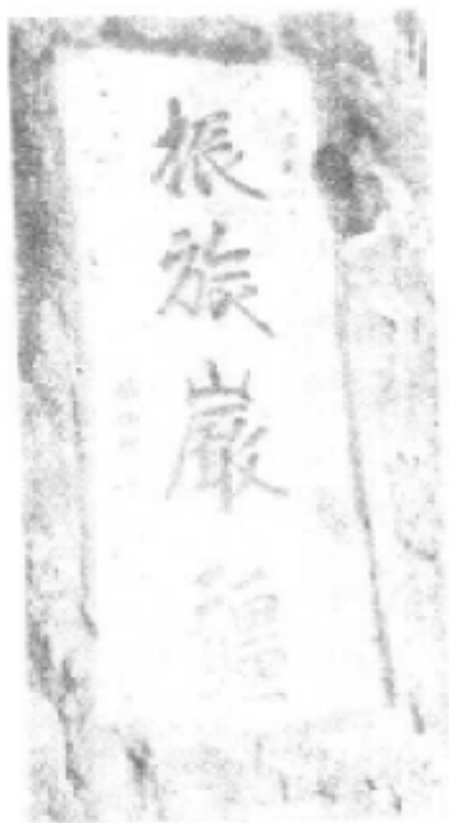 振旅巖疆